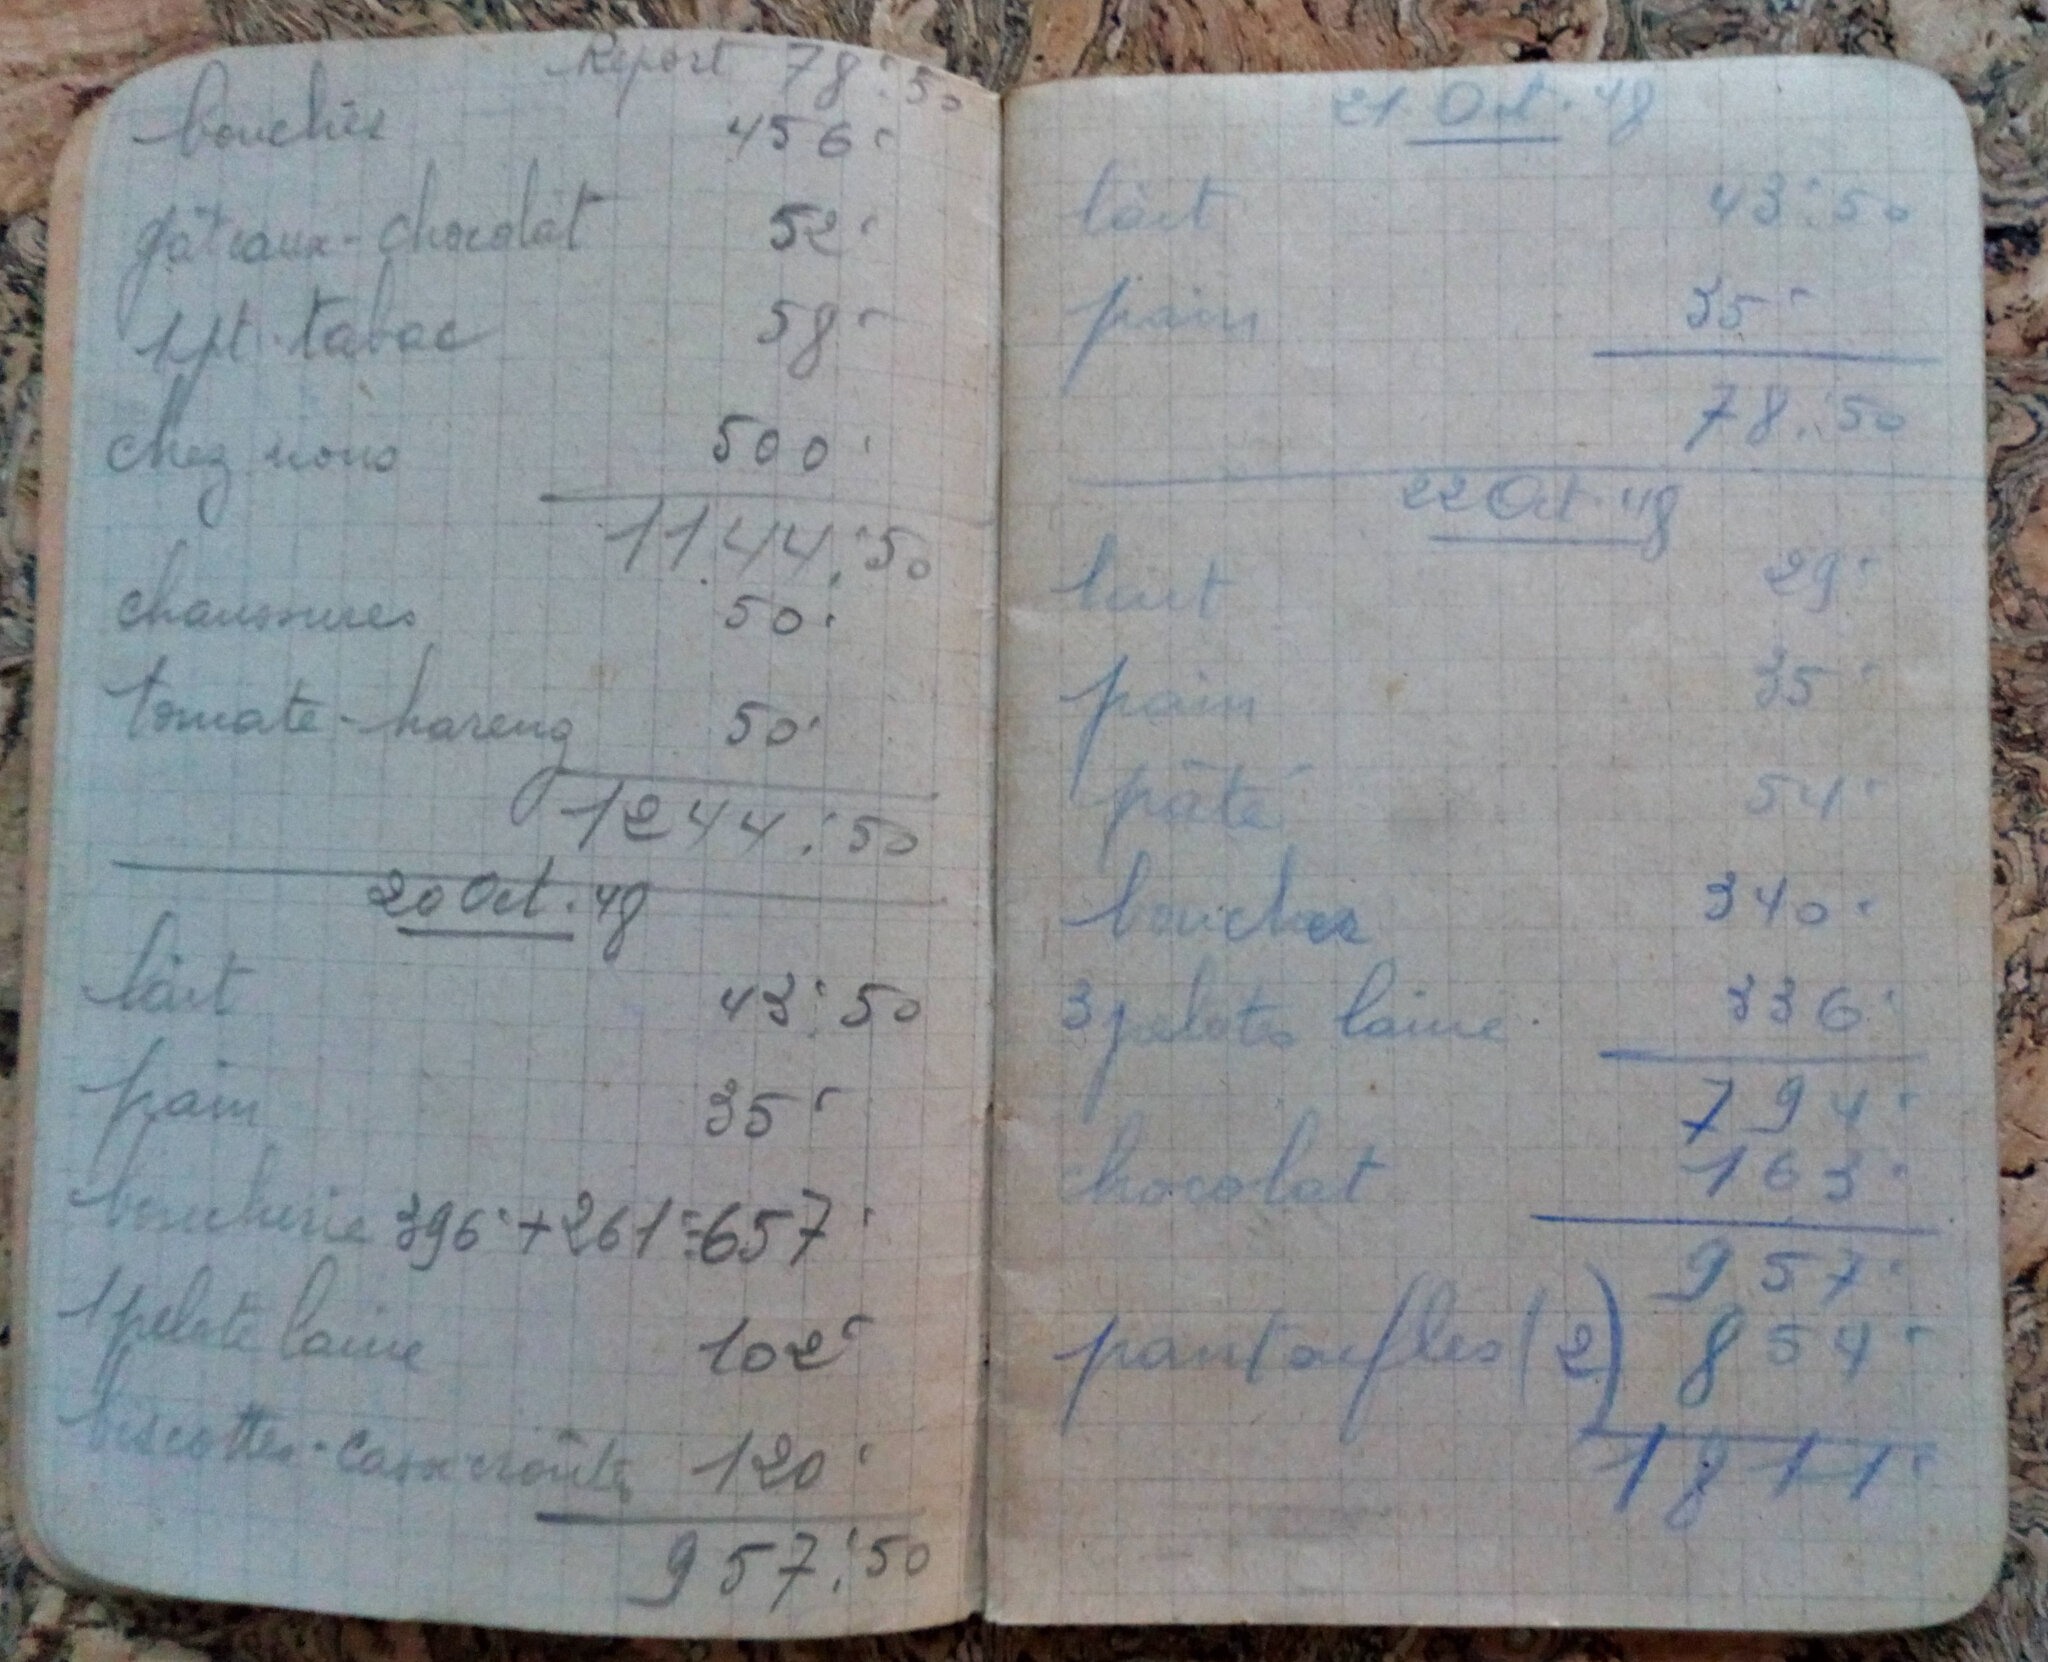 Report 78:50
bouchés 456
gâteaux-chocolat 52
1 pt. tabac 58
chez nous 500
1144,50
chaussures 50
tomate-hareng 50
1244,50
20 Oct. 49
lait 43:50
pain 35
boucherie 396+261=657
1 pelote laine 102
biscottes-cassecroûte 120
957,50
21 Oct. 49
lait 43:50
pain 35
78,50
22 Oct. 49
lait 29
pain 35
pâté 54
bouches 340
3 pelotes laine 336
794
chocolat 163
957
pantoufles (2) 854
1811